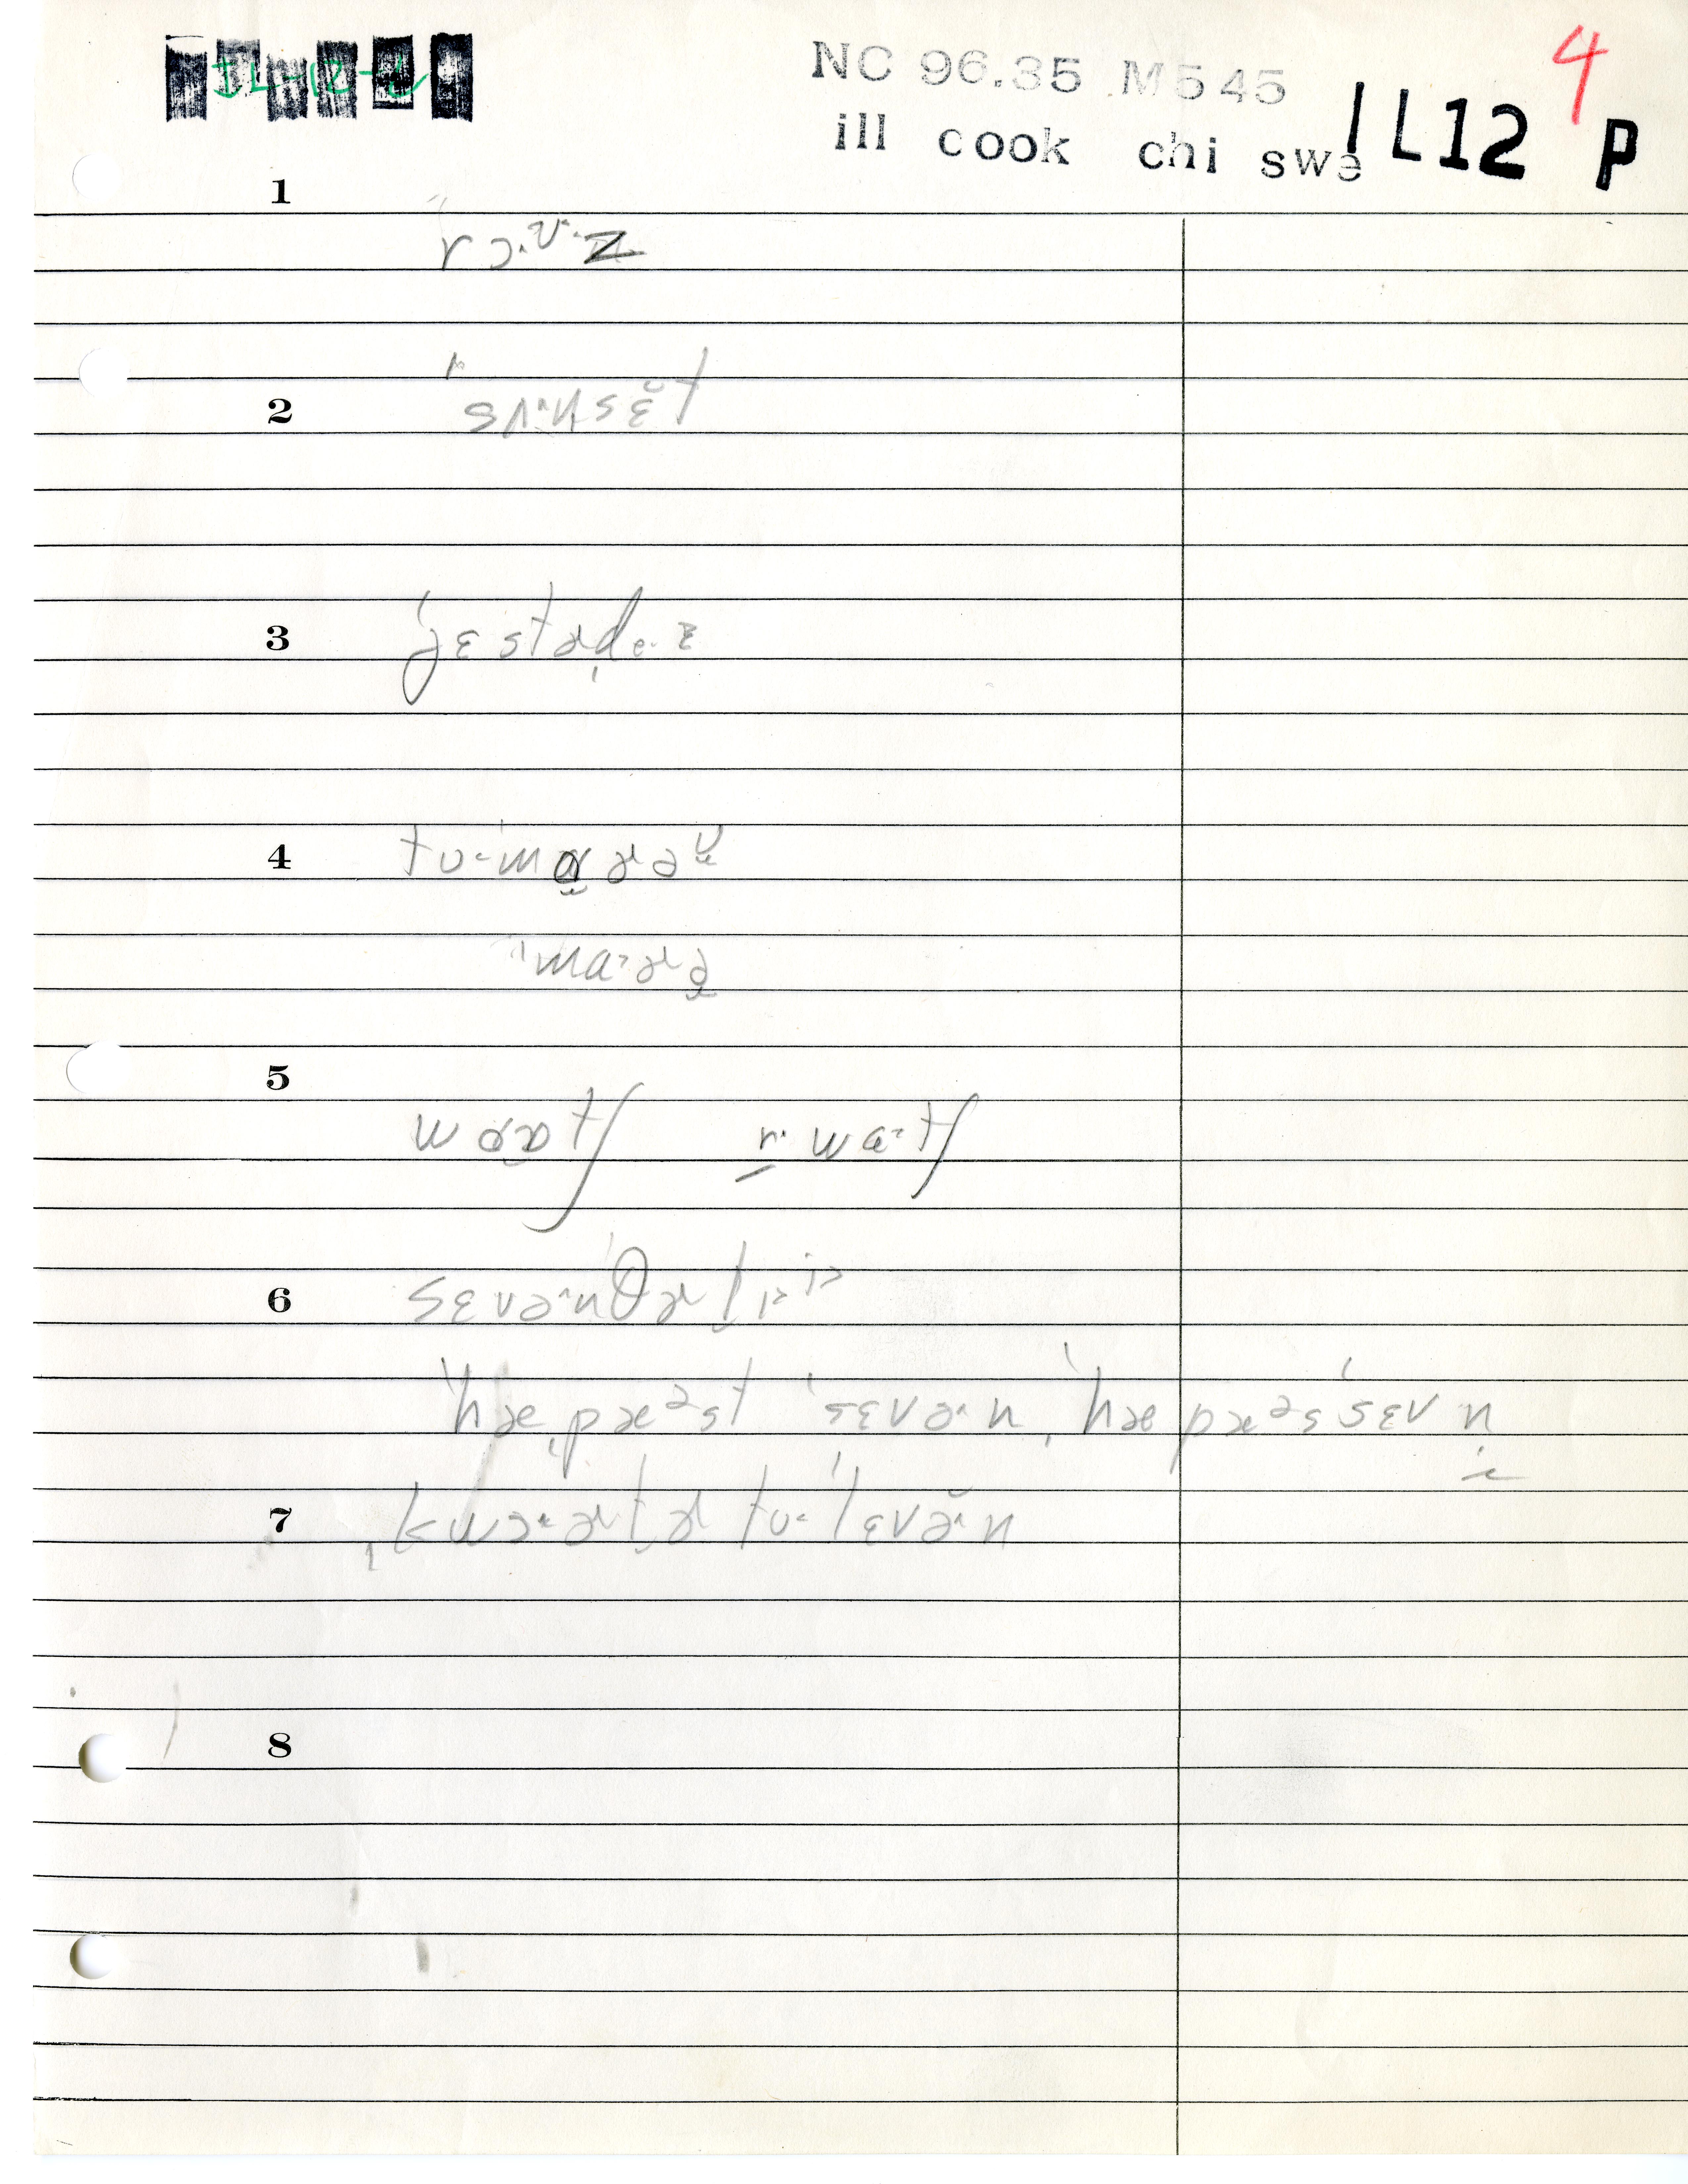 IL-12-
NC 96.35 M545
4
ill cook chi swe
IL12 P
1
rɔ·ᶷ·z
2
ˈsʌ·nsɛ̆t
3
ˈjɛstɚde·ɪ
4
tʊ·ˈmɑɚəᶷ
ˈmɑ·ɚə
5
wɑətʃ r· wɑ·tʃ
6
sɛvə·nˈθɚtɪi
ˈhæˌpæᵊst ˈsɛvə·n, ˈhæpæᵊsˈsɛvn
7
ˌkwɔ·ɚtɚ tʊ·ˈlɛvə̆·n
8